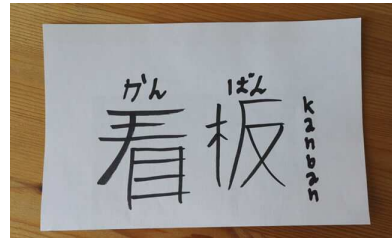 かん ばん
看板
kanban